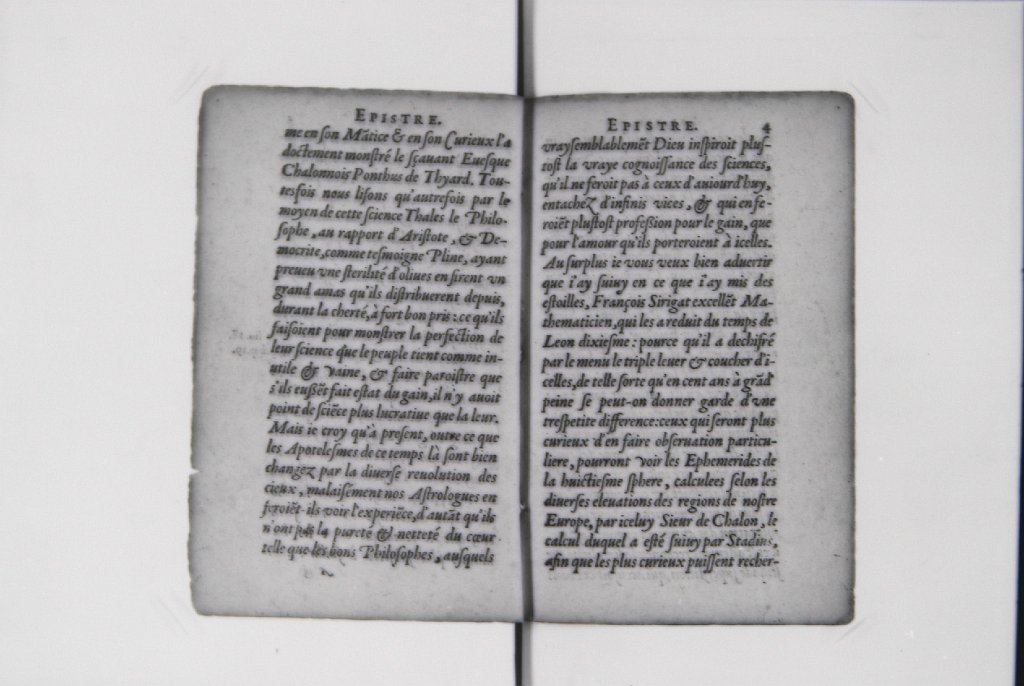 EPISTRE.
me en ſon Mãtice & en ſon Curieux l'a
doctement monſtré le ſçauant Eueſque
Chalonnois Ponthus de Thyard. Tou-
tesfois nous liſons qu'autrefois par le
moyen de cette ſcience Thales le Philo-
ſophe, au rapport d'Ariſtote, & De-
mocrite, comme teſmoigne Pline, ayant
preueu vne ſterilité d'oliues en firent vn
grand amas qu'ils diſtribuerent depuis,
durant la cherté, à fort bon pris: ce qu'ils
faiſoient pour monſtrer la perfection de
leur ſcience que le peuple tient comme in-
utile & vaine, & faire paroiſtre que
s'ils euſſẽt fait eſtat du gain, il n'y auoit
point de ſciẽce plus lucratiue que la leur.
Mais ie croy qu'à preſent, outre ce que
les Apoteleſmes de ce temps là ſont bien
changez par la diuerſe reuolution des
cieux, malaiſément nos Aſtrologues en
feroiẽt-ils voir l'experiẽce, d'autãt qu'ils
n'ont pas la pureté & netteté du cœur
telle que les bons Philoſophes, auſquels
EPISTRE. 4
vrayſemblablemẽt Dieu inſpiroit pluſ-
toſt la vraye cognoiſſance des ſciences,
qu'il ne feroit pas à ceux d'auiourd'huy,
entachez d'infinis vices, & qui en fe-
roiẽt pluſtoſt profeſſion pour le gain, que
pour l'amour qu'ils porteroient à icelles.
Au ſurplus ie vous veux bien aduertir
que i'ay ſuiuy en ce que i'ay mis des
eſtoilles, François Sirigat excellẽt Ma-
thematicien, qui les a reduit du temps de
Leon dixieſme: pource qu'il a dechifré
par le menu le triple leuer & coucher d'i-
celles, de telle ſorte qu'en cent ans à grãd
peine ſe peut-on donner garde d'vne
treſpetite difference: ceux qui ſeront plus
curieux d'en faire obſeruation particu-
liere, pourront voir les Ephemerides de
la huictieſme ſphere, calculees ſelon les
diuerſes eleuations des regions de noſtre
Europe, par iceluy Sieur de Chalon, le
calcul duquel a eſté ſuiuy par Stadius,
afin que les plus curieux puiſſent recher-